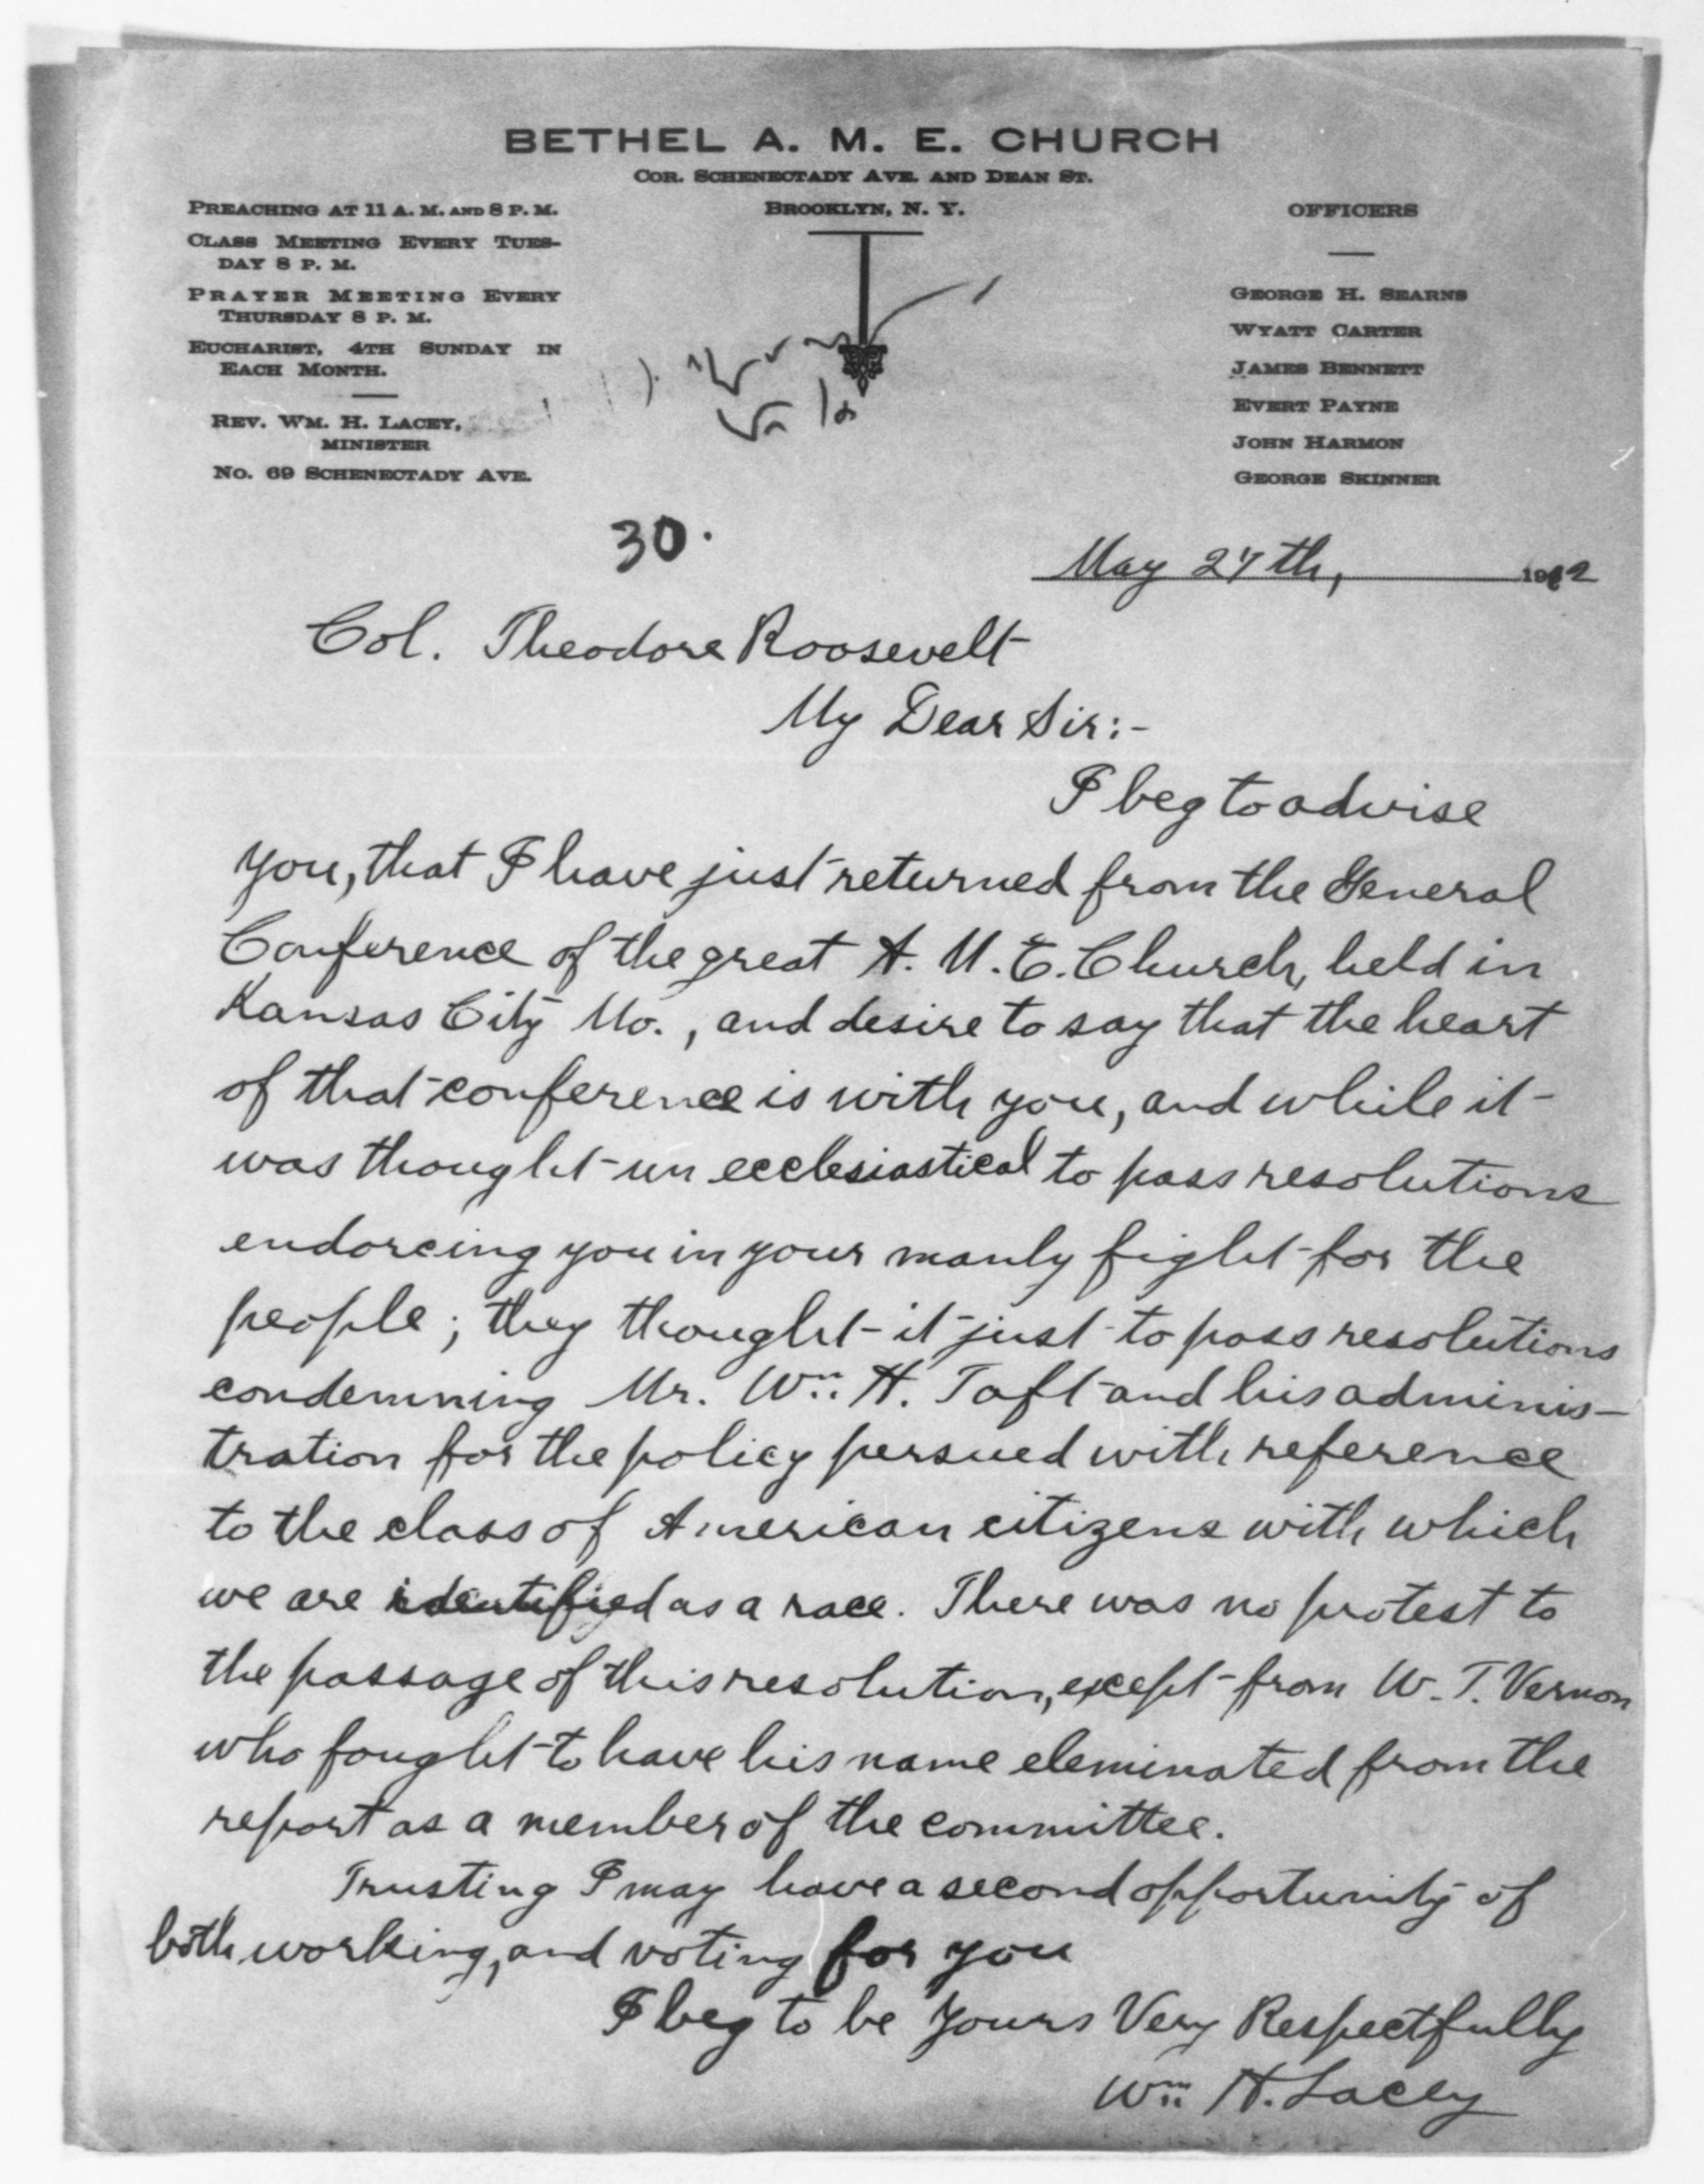 BETHEL A. M. E. CHURCH
COR. SCHENECTADY AVE. AND DEAN ST.
BROOKLYN, N. Y.
PREACHING AT 11 A. M. AND 8 P. M.
CLASS MEETING EVERY TUES-
DAY 8 P. M.
PRAYER MEETING EVERY
THURSDAY 8 P. M.
EUCHARIST, 4TH SUNDAY IN
EACH MONTH.
REV. WM. H. LACEY,
MINISTER
NO. 69 SCHENECTADY AVE.
OFFICERS
GEORGE H. SEARNS
WYATT CARTER
JAMES BENNETT
EVERT PAYNE
JOHN HARMON
GEORGE SKINNER
30.
May 27th, 1912
Col. Theodore Roosevelt
My Dear Sir:-
I beg to advise
you, that I have just returned from the General
Conference of the great A. M. E. Church, held in
Kansas City Mo., and desire to say that the heart
of that conference is with you, and while it
was thought un ecclesiastical to pass resolutions
endorcing you in your manly fight for the
people; they thought it just to pass resolutions
condemning Mr. Wm. H. Taft and his adminis-
tration for the policy persued with reference
to the class of American citizens with which
we are identified as a race. There was no protest to
the passage of this resolution, except from W. T. Vernon
who fought to have his name eleminated from the
report as a member of the committee.
Trusting I may have a second opportunity of
both working, and voting for you
I beg to be Yours Very Respectfully
Wm H. Lacey